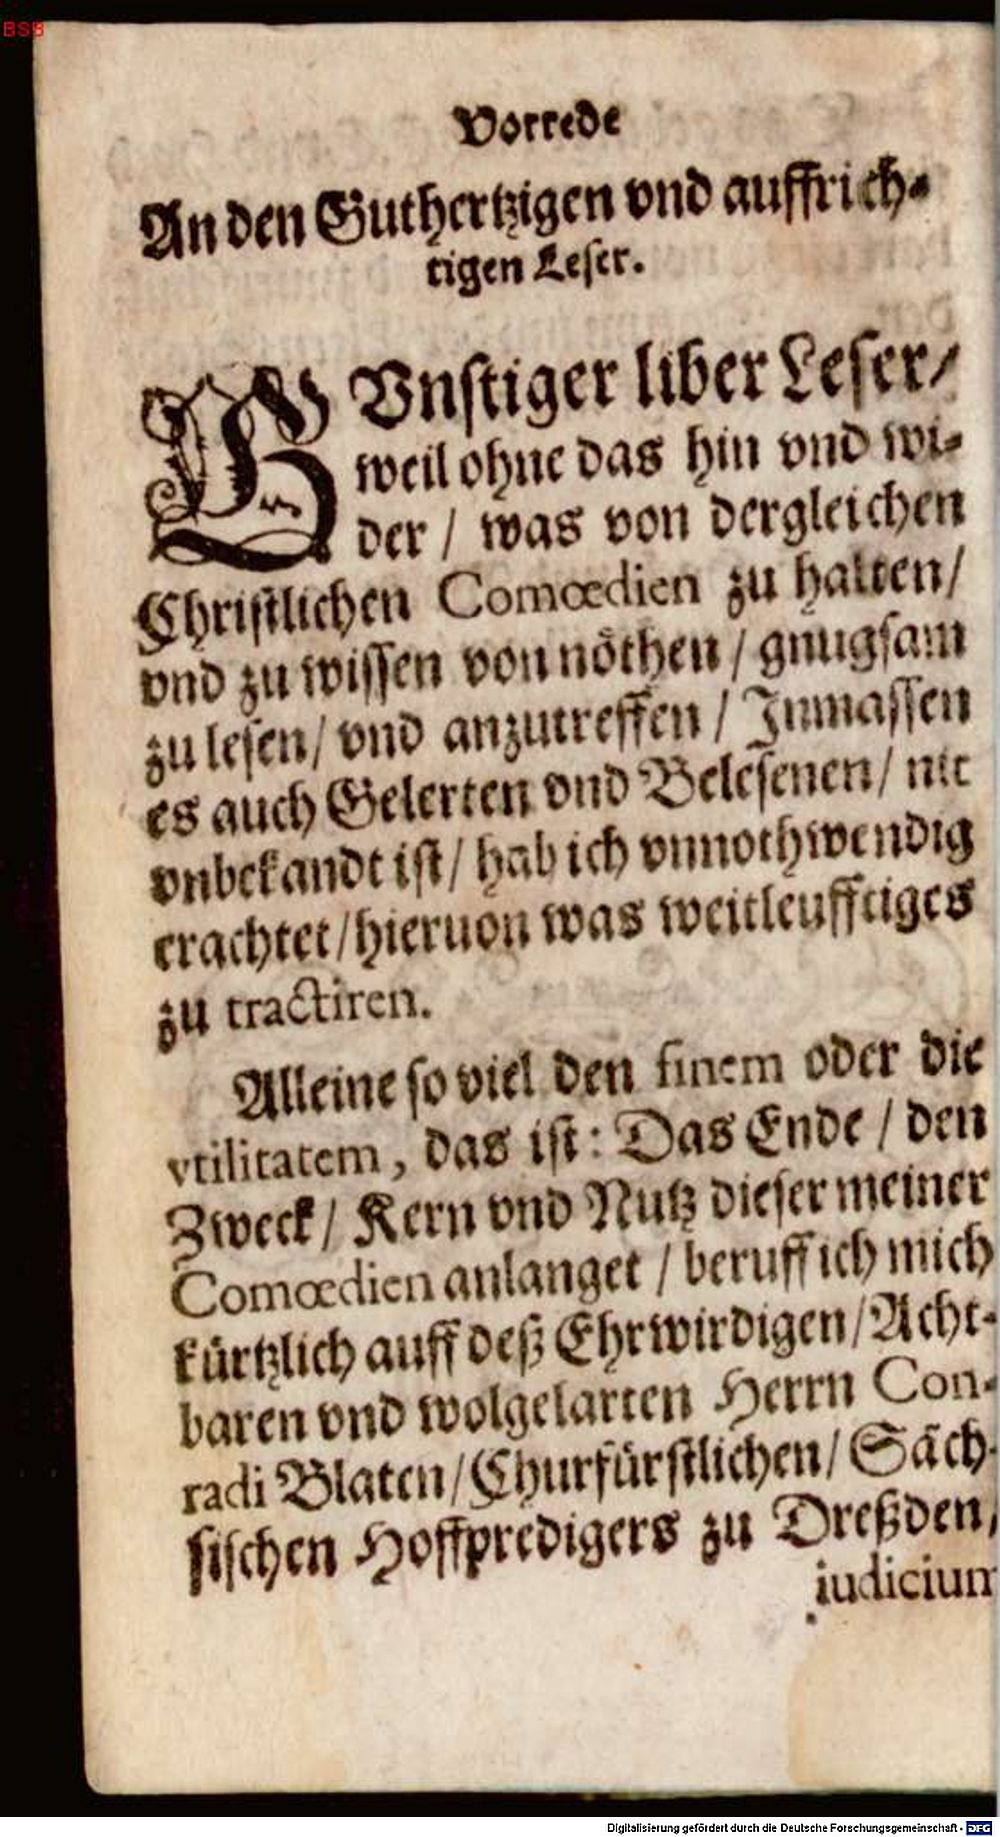 BSB
Vorrede
An den Guthertzigen vnd auffrich-
tigen Leser.
GVnstiger liber Leser/
weil ohne das hin vnd wi-
der / was von dergleichen
Christlichen Comœdien zu halten/
vnd zu wissen von nöthen / gnugsam
zu lesen/ vnd anzutreffen / Inmassen
es auch Gelerten vnd Belesenen/ nit
vnbekandt ist/ hab ich vnnothwendig
erachtet/ hieruon was weitleufftiges
zu tractiren.
Alleine so viel den finem oder die
vtilitatem, das ist: Das Ende / den
Zweck/ Kern vnd Nutz dieser meiner
Comœdien anlanget / beruff ich mich
kürtzlich auff deß Ehrwirdigen/ Acht-
baren vnd wolgelarten Herrn Con-
radi Blaten/ Churfürstlichen/ Säch-
sischen Hoffpredigers zu Dreßden/
iudicium
Digitalisierung gefördert durch die Deutsche Forschungsgemeinschaft - DFG